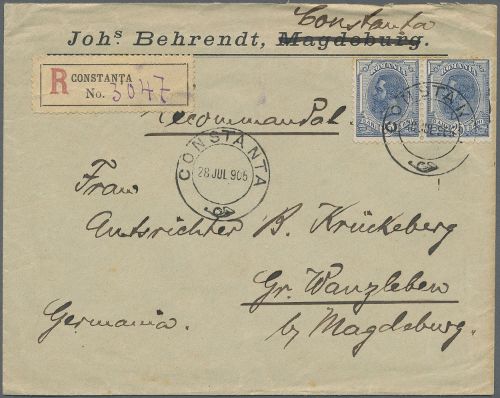 Constanta
Johs. Behrendt, Magdeburg.
R CONSTANȚA
No. 3047
ROMANIA ROMANIA
Recommandat.
CONSTANTA
28 JUL 905
CONSTANTA
Frau
Amtsrichter B. Krückeberg
Gr. Wanzleben
Germania.
by Magdeburg.